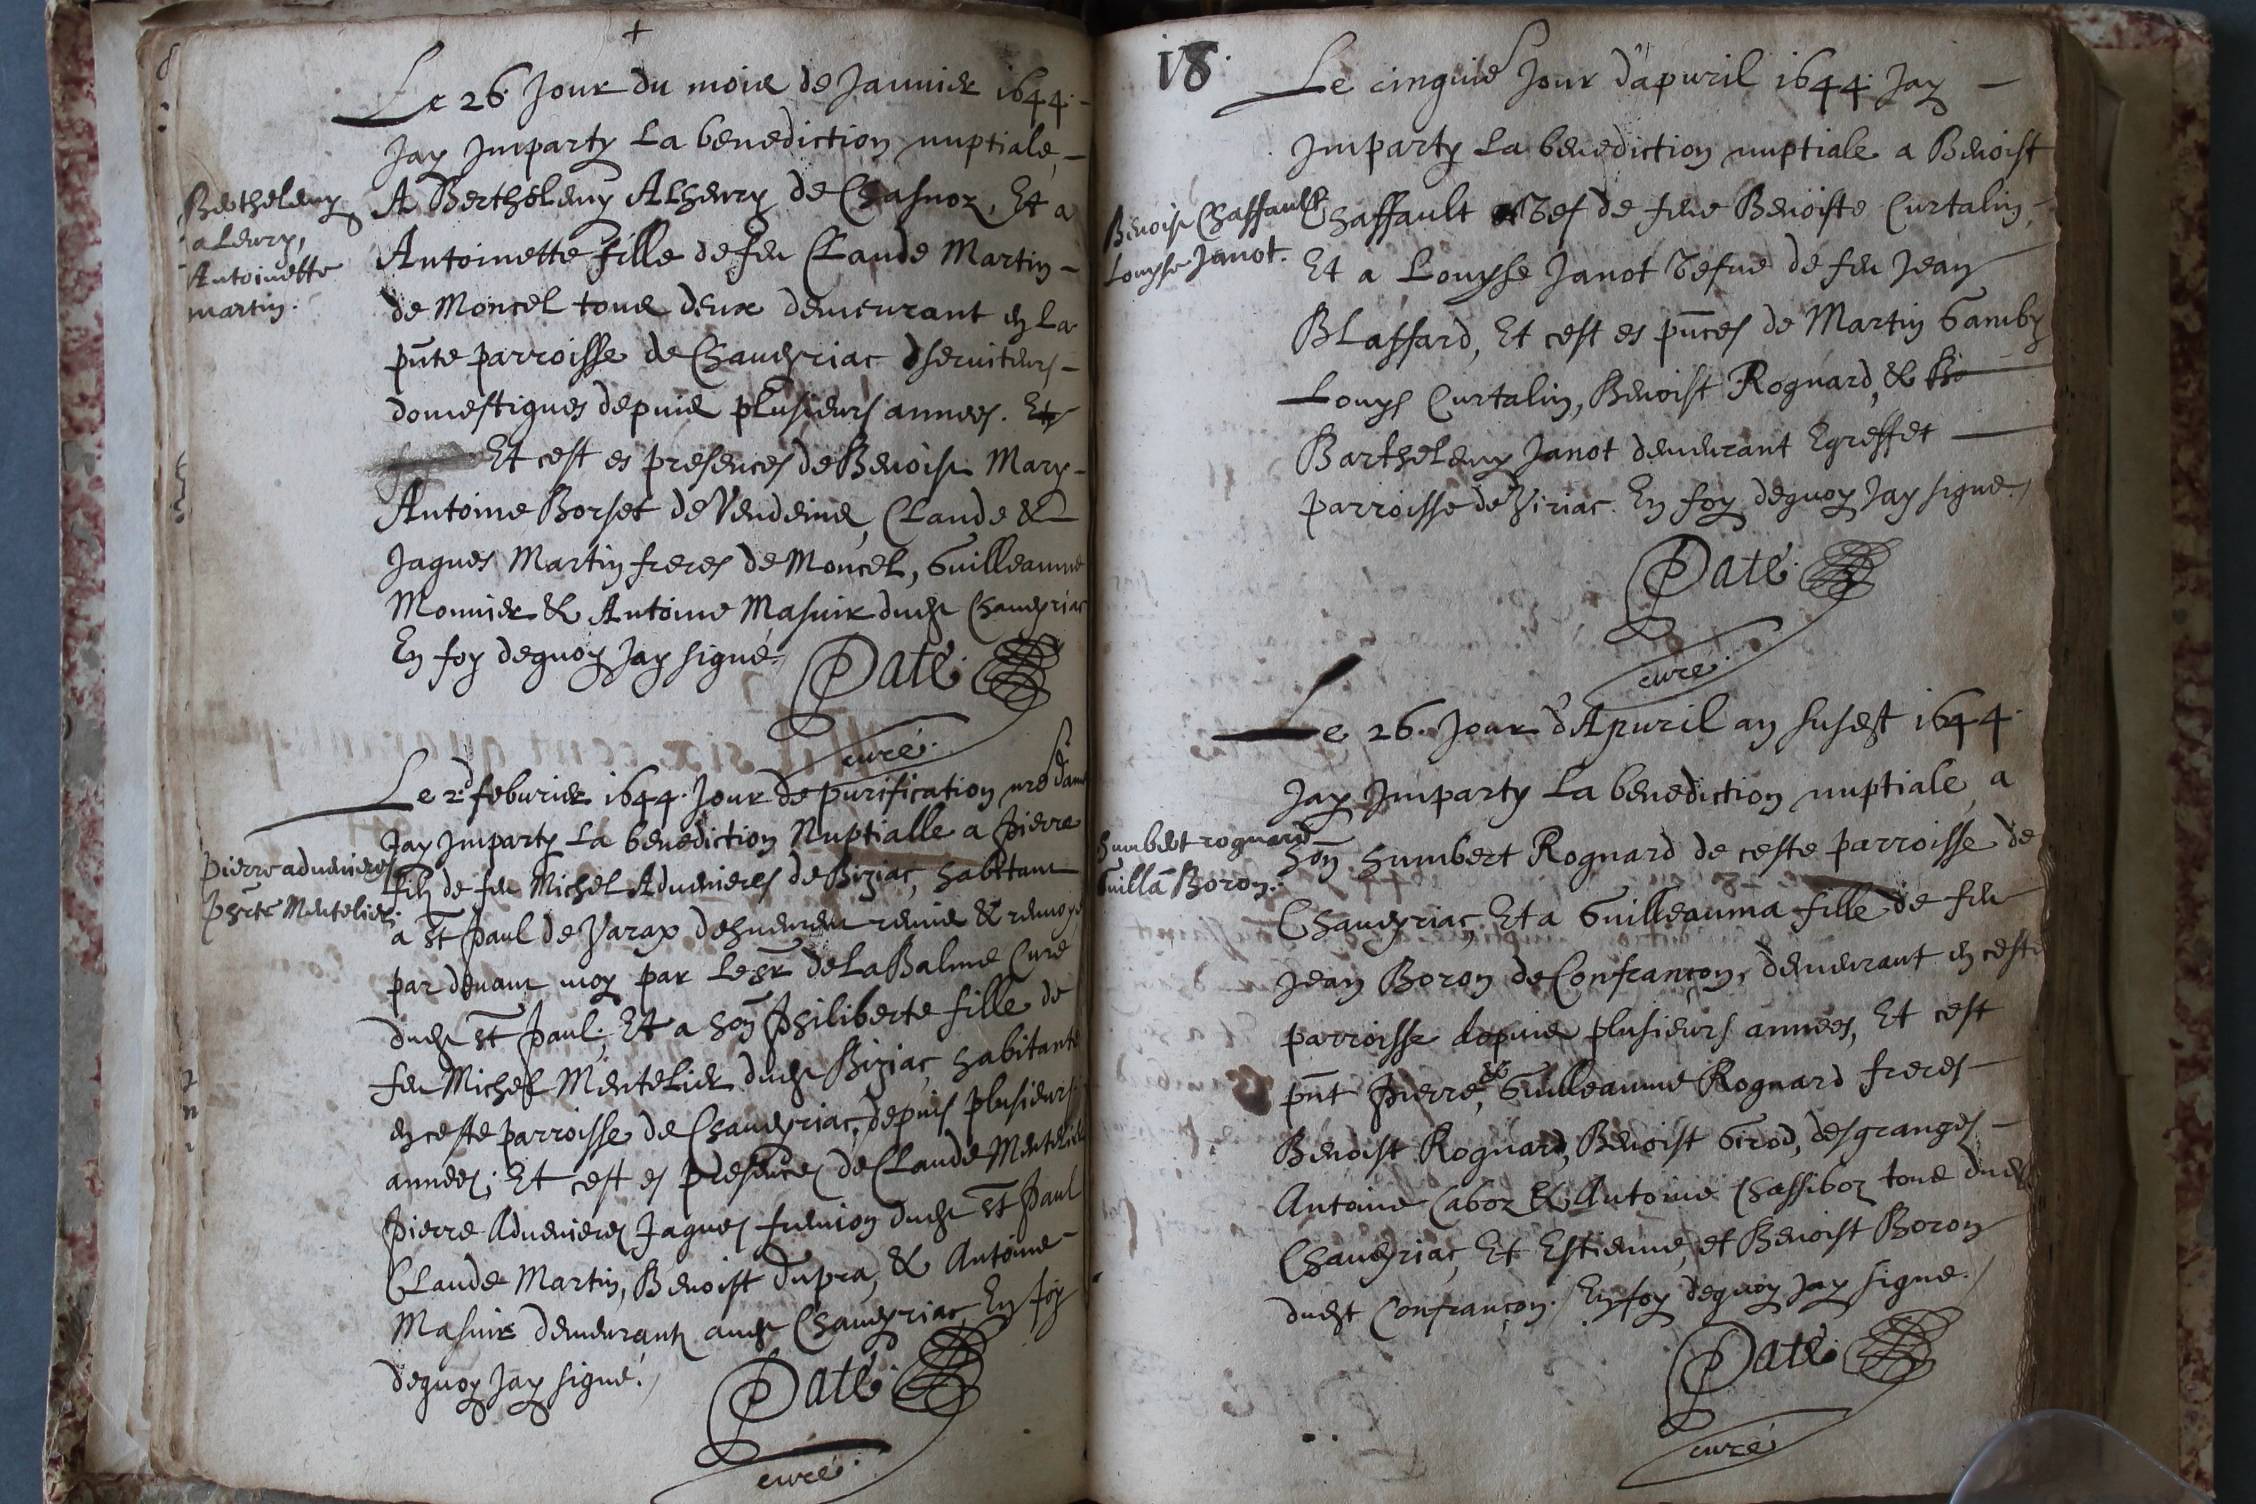 +
Le 26. Jour du mois de Januier 1644.
Jay Imparty La benediction nuptiale,
A Berthelemy ALheury de Chasnoz, Et a
Berthelemy
aLeury,
Antoinette
martin.
Antoinette fille de feu CLaude Martin
de Moncel tous deux demeurant en La
pnte parroisse de Chaueyriac seruiteurs
domestiques depuis plusieurs annees. Et
Et cest es presences de Benoist Mary
Antoine Borset de Vendeins, CLaude &
Jaques Martin freres de Moncel, Guilleaume
Monnier & Antoine Masuir dudt Chaueyriac
En foy dequoy Jay signé.
Paté.
curé.
Le 2d febvrier 1644. Jour de purification nre dame
Jay Imparty La benediction Nuptialle a Pierre
Pierre aduenieres
Phte Mentelier.
filz de feu Michel Aduenieres de Biziac, habitant
a St Paul de Varax & renuoyé
par deuant moy par Le Sr de La Balme Curé
dudt St Paul; Et a hon Philiberte fille de
feu Michel MenteLier dudt Biziac, habitante
en ceste parroisse de Chaueyriac, depuis plusieurs
annees; Et cest es presences de CLaude Mentelier
Pierre Aduenieres Jaques dudt St Paul
CLaude Martin, Benoist dupra, & Antoine
Masuir demeurantz audt Chaueyriac, En foy
dequoy Jay signé.
Paté.
curé.
18.
Le cinquie Jour d'apuril 1644. Jay
Imparty La benediction nuptiale a Benoist
Benoist Chaffault
Louyse Janot.
Chaffault vef de feue Benoiste Curtalin,
Et a Louyse Janot vefue de feu Jean
BLaffard, Et cest es pnces de Martin Gamby
Louys Curtalin, Benoist Rognard, &
BartheLemy Janot demeurant Egreffet
parroisse de Viriac. En foy dequoy Jay signé.
Paté.
curé.
Le 26. Jour d'Apuril an susdt 1644.
Jay Imparty La benediction nuptiale, a
humbert rognard
Guilla Boron.
hon humbert Rognard de ceste parroisse de
Chaueyriac, Et a Guilleauma fille de feu
Jean Boron de Confrançon, demeurant en ceste
parroisse depuis plusieurs annees, Et cest
pnt Pierre, & Guilleaume Rognard freres
Benoist Rognard, Benoist Girod, desgranges
Antoine Caboz & Antoine Chassiboz tous dudt
Chaueyriac, Et Estienne, et Benoist Boron
dudt Confrançon. En foy dequoy Jay signé.
Paté.
curé